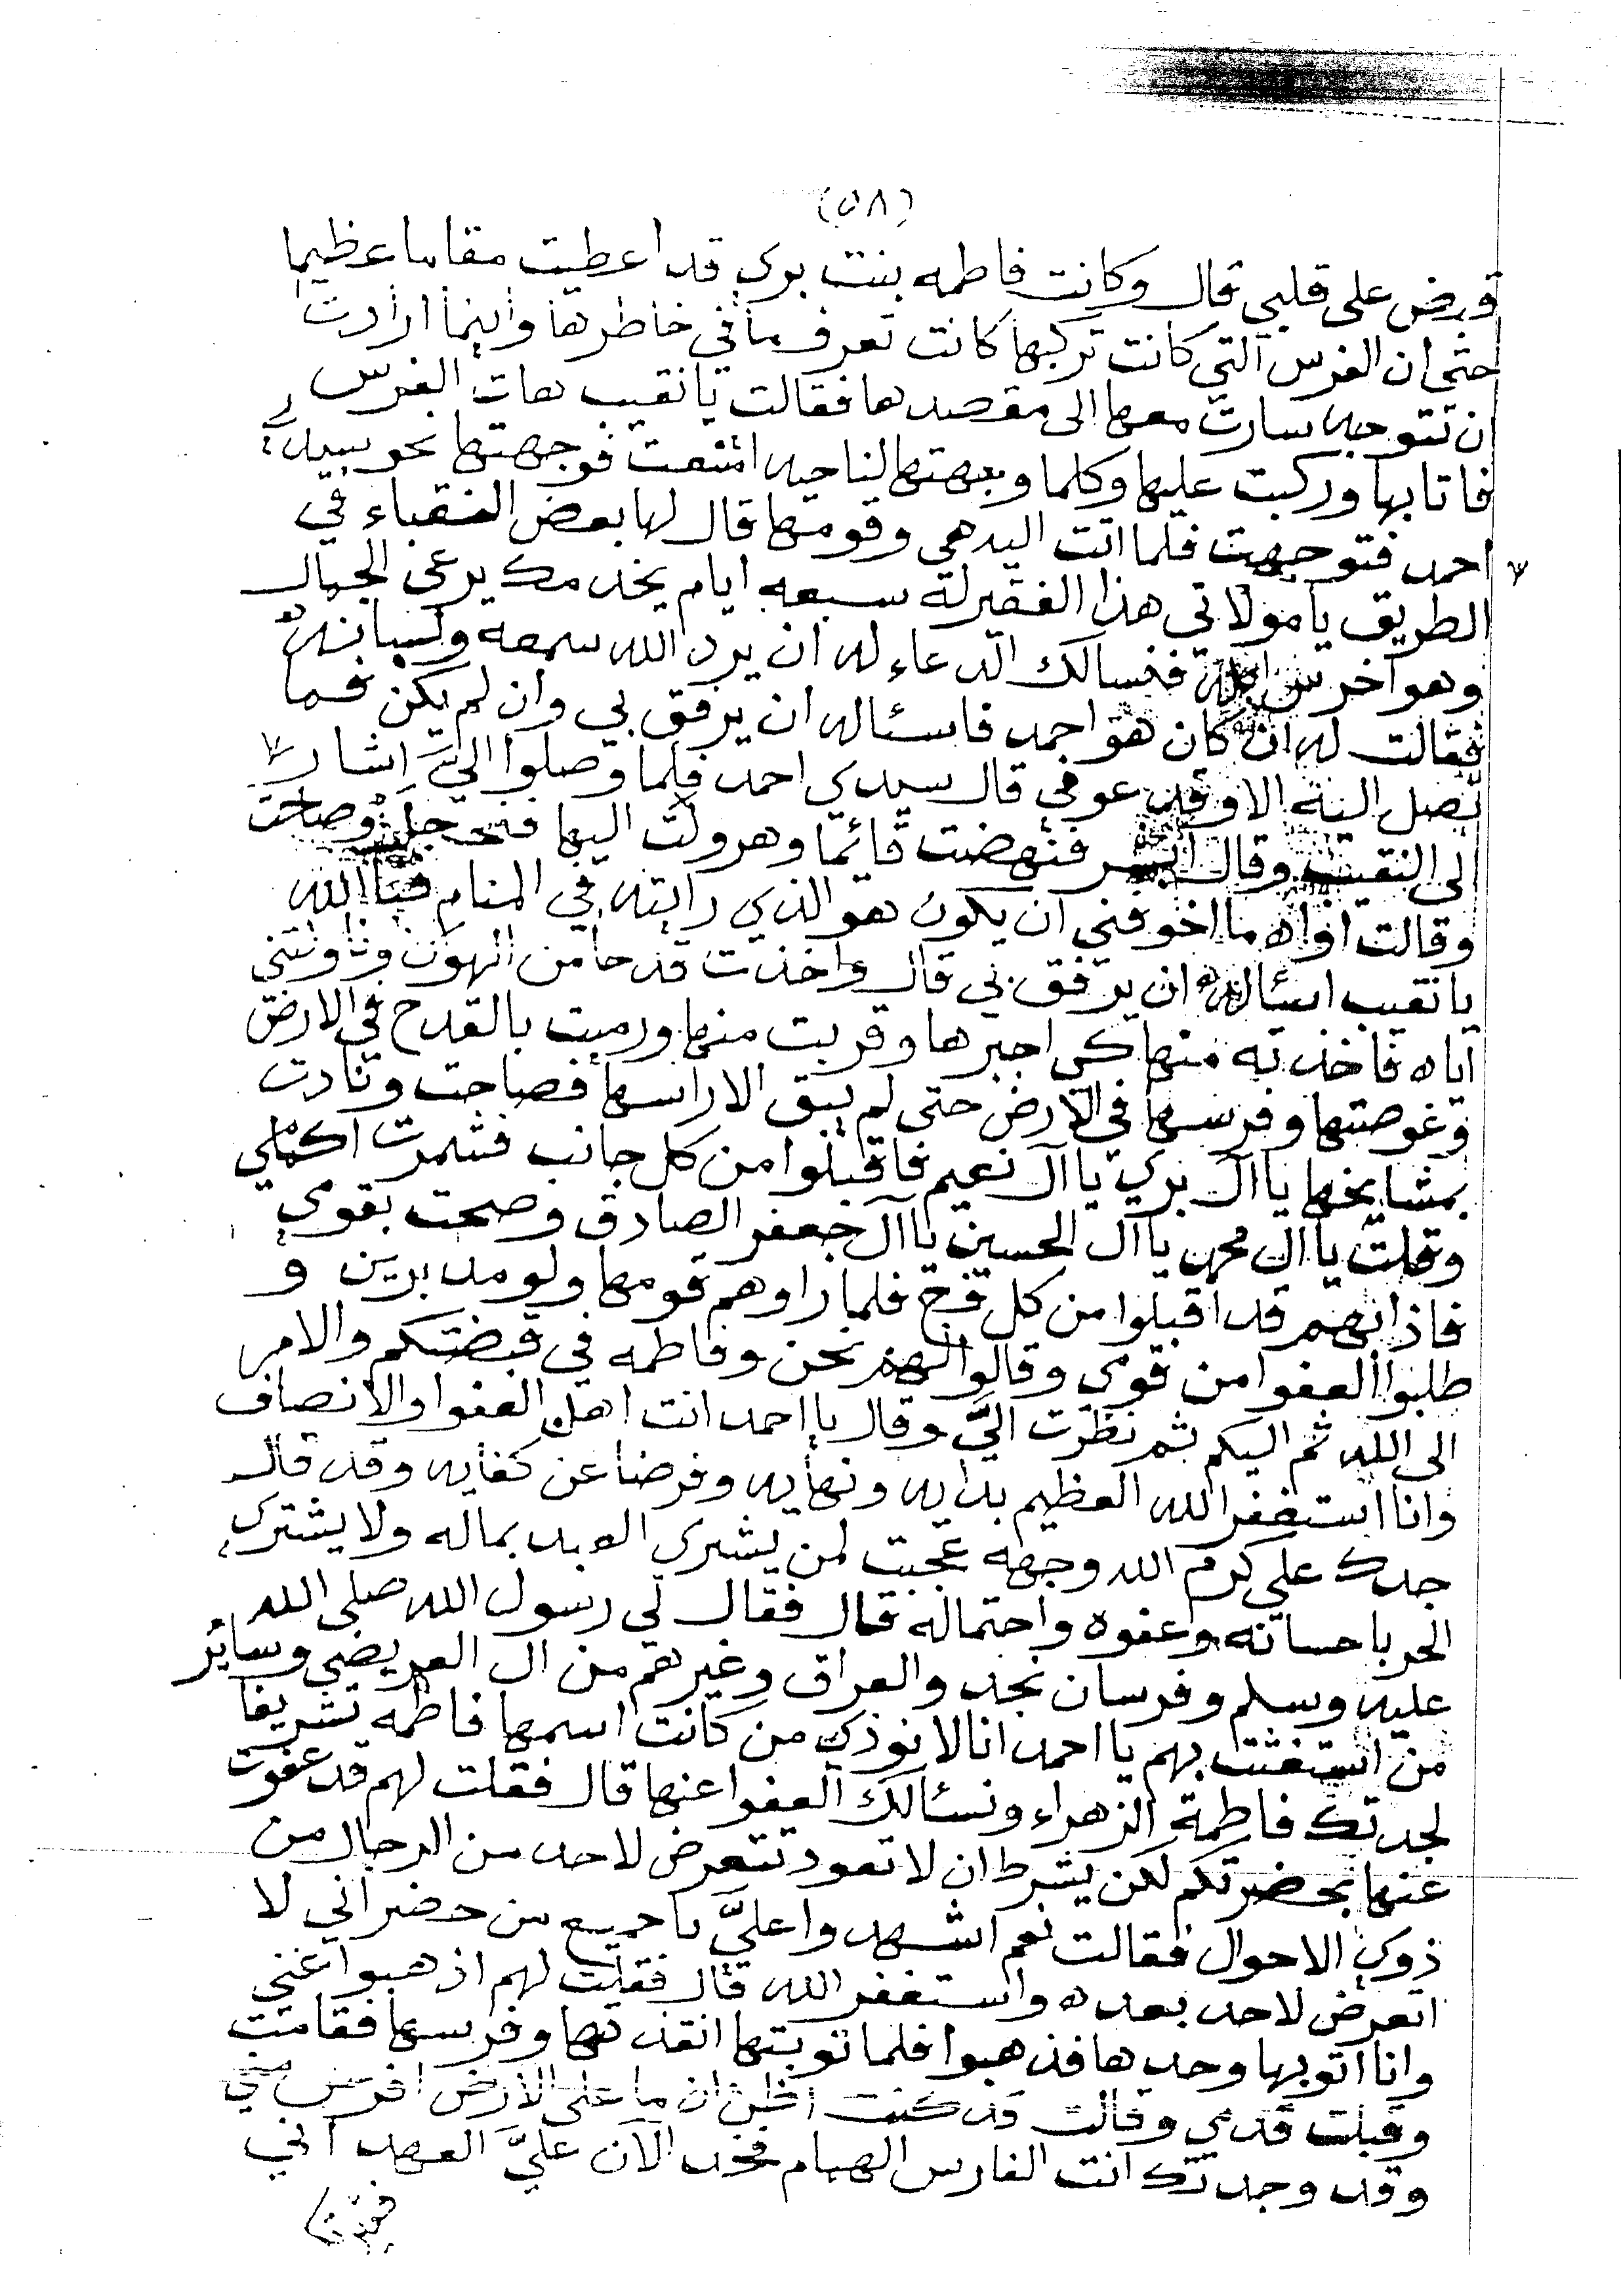 (٥٨)
وبض على قلبي قال وكانت فاطمه بنت بري قد اعطيت مقاما عظيما
حتى ان الفرس التي كانت تركبها كانت تعرف ما في خاطرها واينما ارادت
ان تتوجه سارت معها الى مقصدها فقالت يا نقيب هات الفرس
فاتا بها وركبت عليها وكلما وجهتها لناحيه امتنعت فوجهتها نحو سيدي
احمد فتوجهت فلما اتت اليه هي وقومها قال لها بعض النقباء في
الطريق يا مولاتي هذا الفقير له سبعه ايام يخدمك يرعى الجمال
وهو اخرس فنسالك الدعاء له ان يرد الله سمعه ولسانه
فقالت له ان كان هو احمد فاسئاله ان يرفق بي وان لم يكن فما
تصل اليه الا وقد عوفي قال سيدي احمد فلما وصلوا اليّ اشار
الى النقيب وقال فنهضت قائما وهرولت اليها وصاحت
وقالت اواه ما اخوفني ان يكون هو الذي رايته في المنام فبالله
يا نقيب اسئاله ان يرفق بي قال واخذت قدحا من الهون وناولتني
اياه فاخذته منها كي اجبرها وقربت منها ورميت بالقدح في الارض
وغوصتها وفرسها في الارض حتى لم يبق الا راسها فصاحت ونادت
بمشايخها يا آل بري يا آل نعيم فاقبلوا من كل جانب فشمرت اكمامي
وقلت يا ال محمد يا آل الحسين يا آل جعفر الصادق وصحت بقومي
فاذا بهم قد اقبلوا من كل فج فلما راوهم قومها ولو مدبرين و
طلبوا العفوا من قومي وقالوا لهم نحن وفاطمه في قبضتكم والامر
الى الله ثم اليكم ثم نظرت اليّ وقال يا احمد انت اهل العفوا والانصاف
وانا استغفر الله العظيم بدايه ونهايه وفرضا عن كفايه وقد قال
جدك علي كرم الله وجهه عجبت لمن يشري العبد بماله ولا يشتري
الحر باحسانه وعفوه واحتماله قال فقال لي رسول الله صلى الله
عليه وسلم وفرسان نجد والعراق وغيرهم من ال العريضي وسائر
من استغثت بهم يا احمد انا لا نوذي من كانت اسمها فاطمه تشريفا
لجدتك فاطمة الزهراء ونسئالك العفوا عنها قال فقلت لهم قد عفوت
عنها بحضرتكم لكن بشرط ان لا تعود تتعرض لاحد من الرجال من
ذوي الاحوال فقالت نعم اشهدوا عليّ يا جميع من حضر اني لا
اتعرض لاحد بعده واستغفر الله قال فقلت لهم اذهبوا عني
وانا اتوبها وحدها فذهبوا فلما توبتها انقذتها وفرسها فقامت
وقبلت قدمي وقالت قد كنت اظن ان ما على الارض افرس مني
وقد وجدتك انت الفارس الهمام فخذ الآن عليّ العهد اني